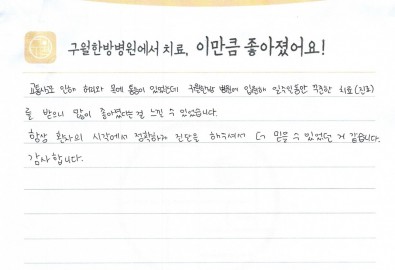 구월한방병원에서 치료, 이만큼 좋아졌어요!
교통사고로 인해 허리와 목에 통증이 있었는데 구월한방 병원에 입원해 일주일동안 꾸준한 치료(진료)
를 받으니 많이 좋아졌다는걸 느낄 수 있었습니다.
항상 환자의 시각에서 정확하게 진단을 해주셔서 더 믿을 수 있었던 거 같습니다.
감사합니다.